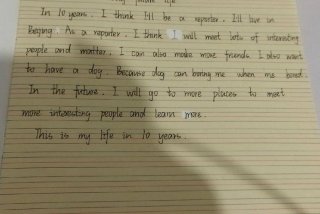 life
In 10 years. I think I'll be a reporter. I'll live in
Beijing. As a reporter. I think I will meet lots of interesting
people and matter. I can also make more friends. I also want
to have a dog. Because dog can me when me bord.
In the future. I will go to more places to meet
more interesting people and learn more.
This is my life in 10 years.